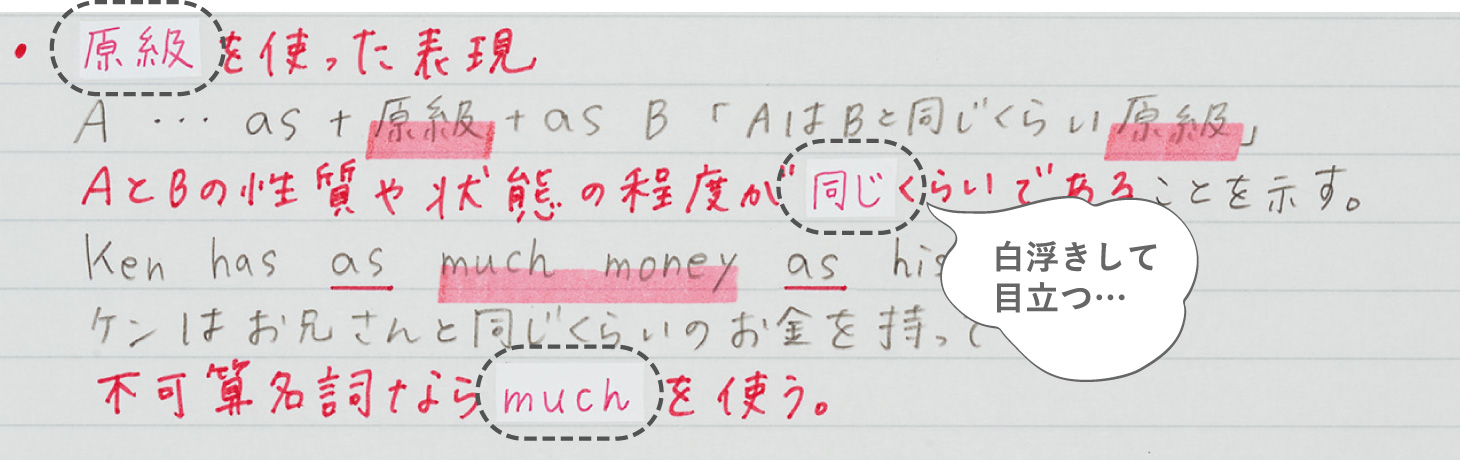 ・原級を使った表現
A … as + 原級 + as B 「AはBと同じくらい原級」
AとBの性質や状態の程度が同じくらいであることを示す。
Ken has as much money as his
ケンはお兄さんと同じくらいのお金を持って
不可算名詞なら much を使う。
白浮きして
目立つ…